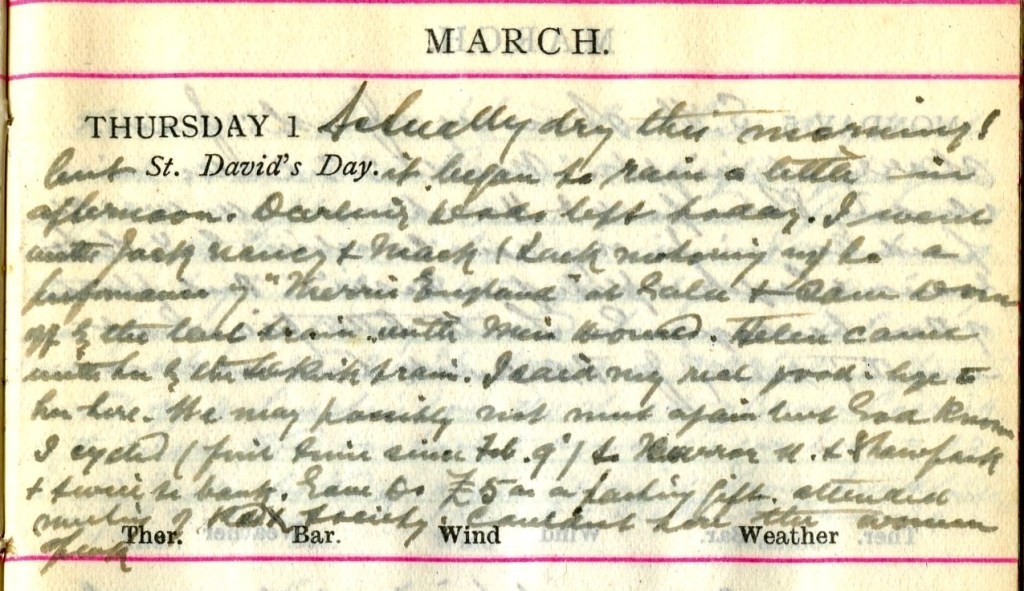 MARCH.
THURSDAY 1 Actually dry this morning!
but St. David's Day. it began to rain a little in
afternoon. Darling left today. I went
with Jack Nancy & Mack (Jack motoring us) to a
performance of "Merrie England" at Gala & saw
off by the last train with Miss. Helen came
with her by the Selkirk train. I said my real good-bye to
her here. We may possibly not meet again but God knows
I cycled (first time since Feb. 9) to U. & Shawpark
& twice to bank. Gave Do £5 as a parting gift. attended
meeting of Society. Couldn't hear the women
speak
Ther. Bar. Wind Weather